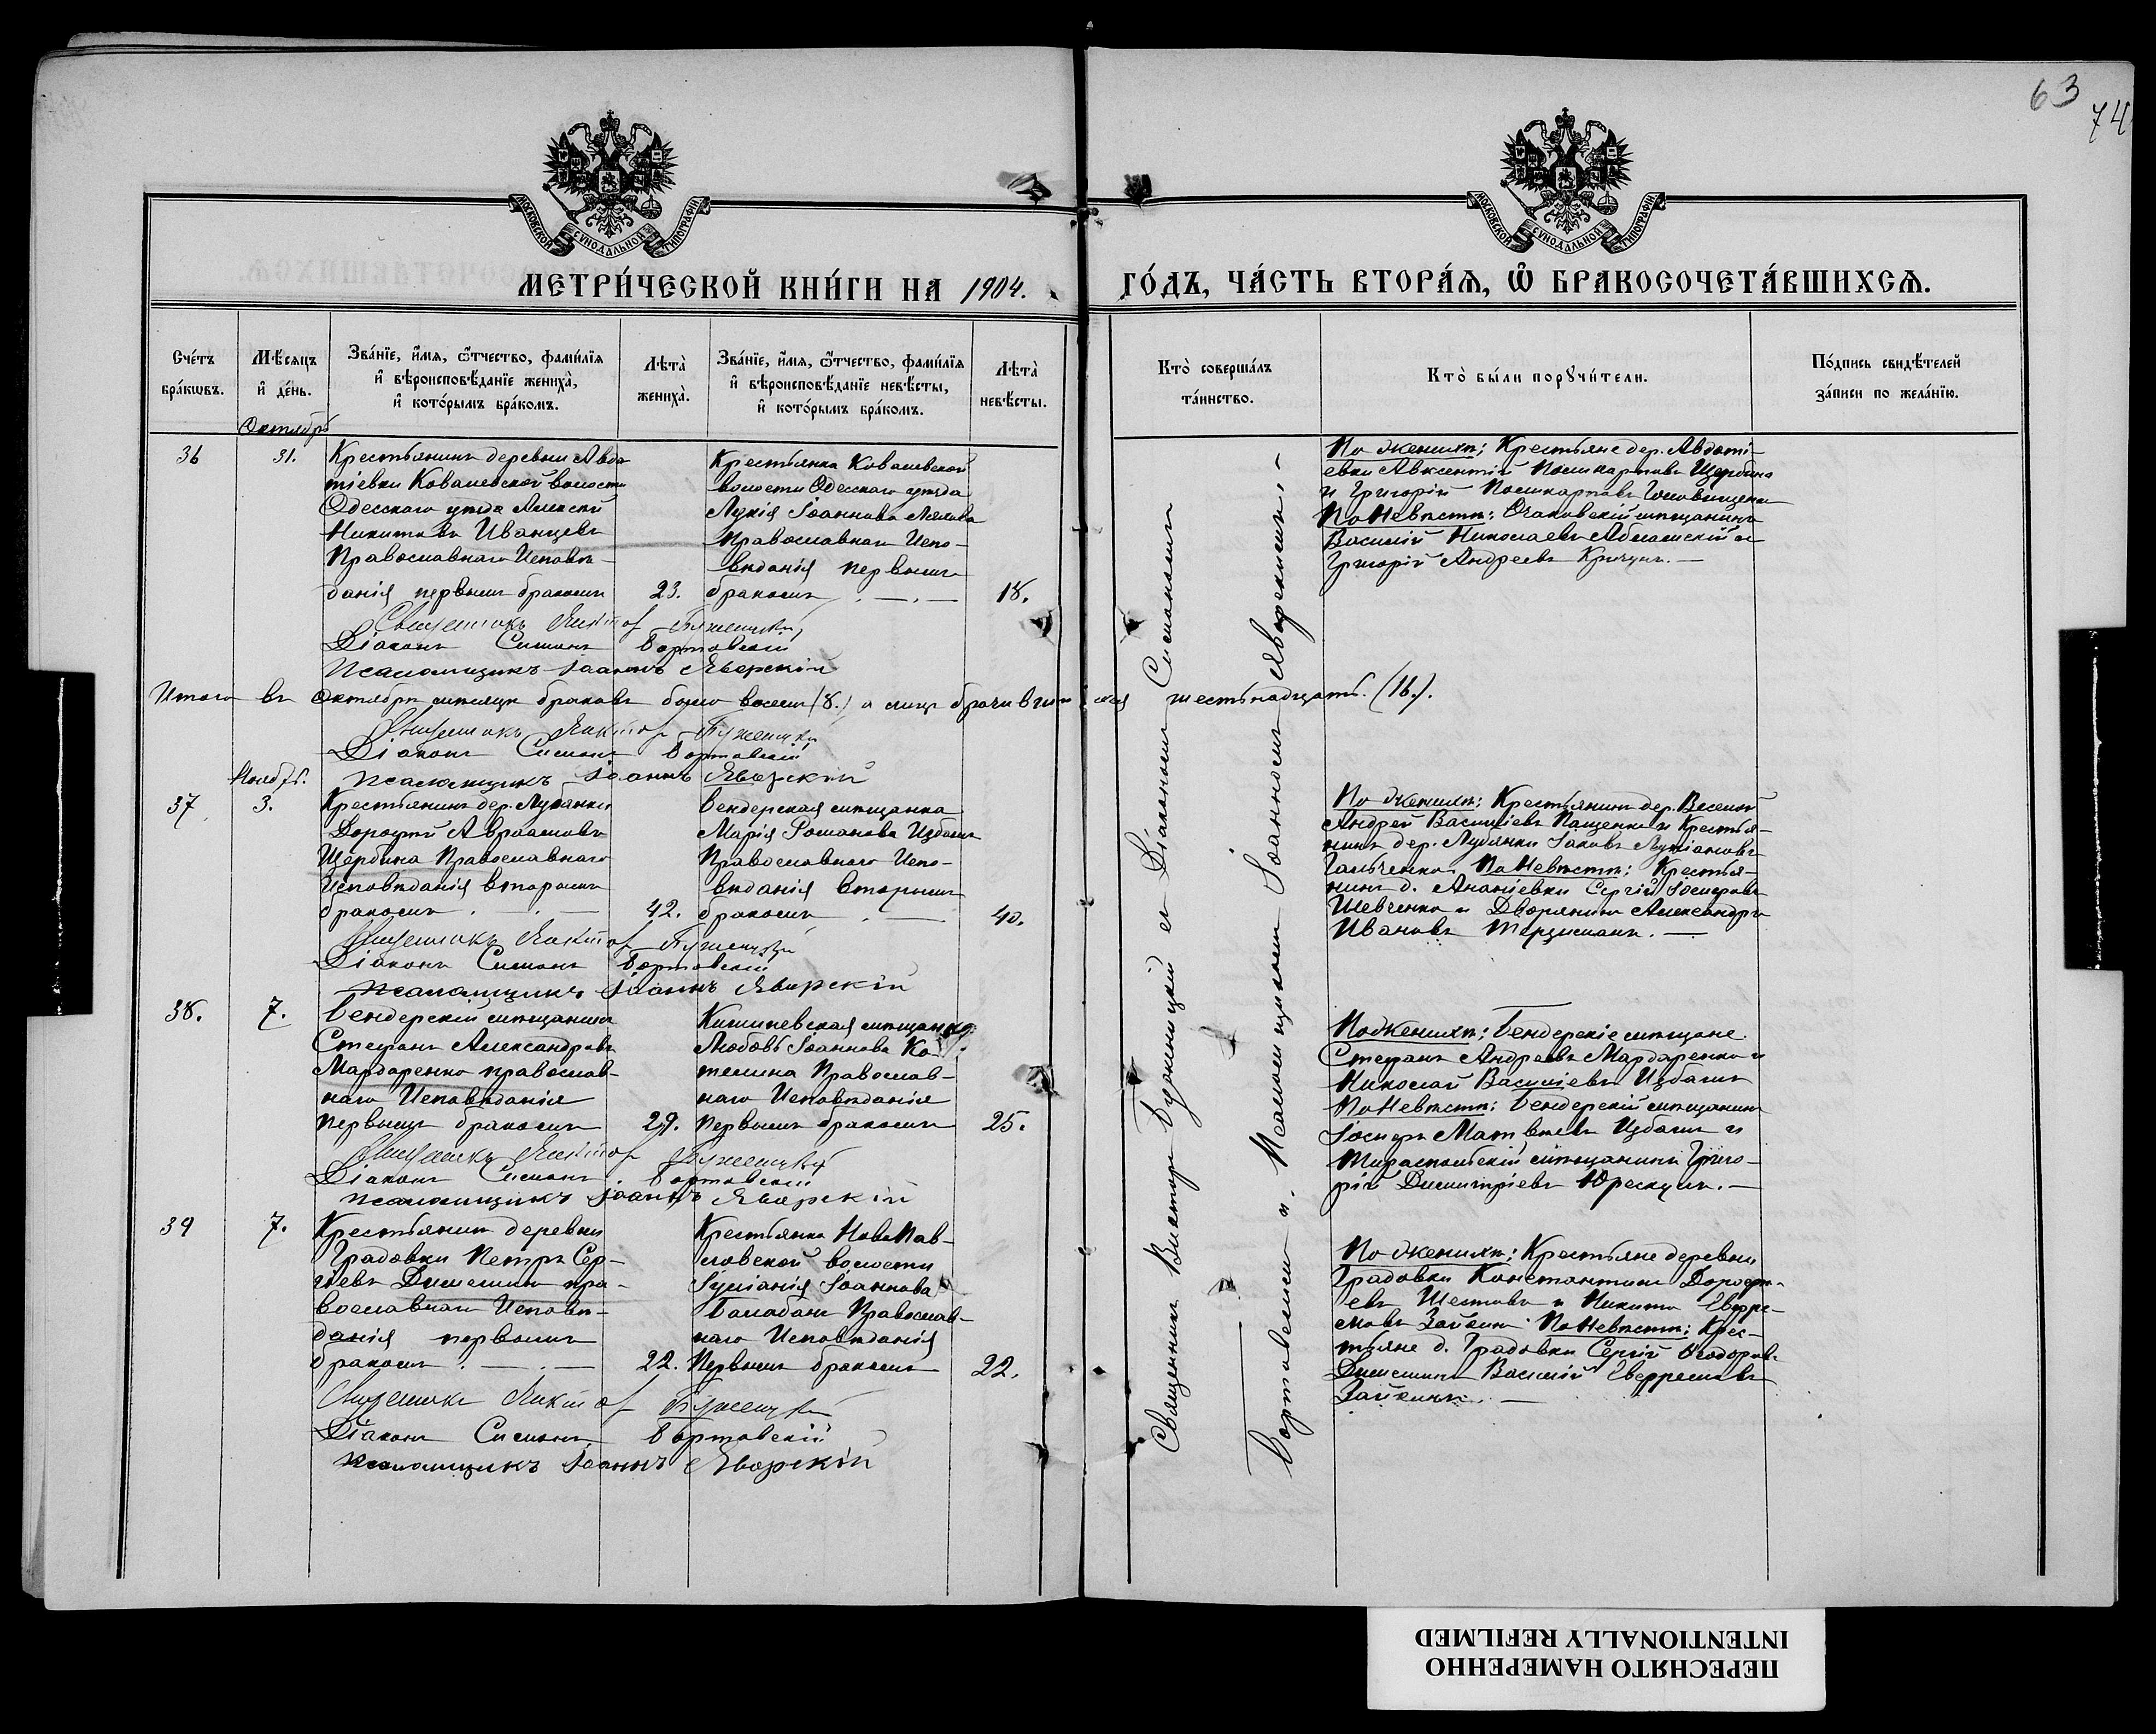 63
74
МОСКОВСКОЙ СУНОДАЛЬНОЙ ТИПОГРАФІИ
МОСКОВСКОЙ СУНОДАЛЬНОЙ ТИПОГРАФІИ
МЕТРИ́ЧЕСКОЙ КНИ́ГИ НА 1904.
ГО́ДЪ, ЧА́СТЬ ВТОРА́Ѧ, Ѽ БРАКОСОЧЕТА́ВШИХСѦ.
Сче́тъ
бра́кωвъ.
Мѣ́сяцъ
и҆ де́нь.
Зва́нїе, и҆́мя, ѻ҆́тчество, фами́лїя
и҆ вѣроисповѣ́данїе жениха̀,
и҆ кото́рымъ бра́комъ.
Лѣта̀
жениха̀.
Зва́нїе, и҆́мя, ѻ҆́тчество, фами́лїя
и҆ вѣроисповѣ́данїе невѣ́сты,
и҆ кото́рымъ бра́комъ.
Лѣта̀
невѣ́сты.
Кто̀ соверша́лъ
та́инство.
Кто̀ бы́ли порꙋчи́тели.
По́дпись свидѣ́телей
за́писи по жела́нїю.
Октябрь
36
31.
Крестьянинъ деревни Авдо
тіевки Ковалевской волости
Одесскаго уѣзда Алексѣй
Никитовъ Иванцевъ
Православнаго Исповѣ-
данія первымъ бракомъ
23.
Крестьянка Ковалевской
волости Одесскаго уѣзда
Лукія Іоаннова
Православнаго Испо-
вѣданія первымъ
бракомъ
18.
По женихѣ: Крестьяне дер. Авдоті-
евки Авксентій Поликарповъ Щербина
и Григорій Поликарповъ
По Невѣстѣ: Очаковскій мѣщанинъ
Василій Николаевъ и
Григорій Андреевъ
Священникъ Виктор
Діаконъ Симонъ Бортовскій
Псаломщикъ Іоаннъ Яворскій
Итого въ Октябрѣ мѣсяцѣ браковъ было восемь (8.) а лицъ брачившихся шестьнадцать. (16.).
Священникъ Виктор
Діаконъ Симонъ Бортовскій
Псаломщикъ Іоаннъ Яворскій
Ноябрь.
37
3.
Крестьянинъ дер. Лубянки
Дорофей Авраамовъ
Щербина Православнаго
Исповѣданія вторымъ
бракомъ
42.
Бендерская мѣщанка
Марія Романова Избашъ
Православнаго Испо-
вѣданія вторымъ
бракомъ
40.
По женихѣ: Крестьянинъ дер. Веселой
Андрей Василіевъ Пащенко и Крестья-
нинъ дер. Лубянки Іаковъ Лукіановъ
Гальченко. По Невѣстѣ: Крестья-
нинъ д. Ананіевки Сергій Іосифовъ
Шевченко и Дворянинъ Александръ
Ивановъ
Священникъ Виктор
Діаконъ Симонъ Бортовскій
Псаломщикъ Іоаннъ Яворскій
38.
7.
Бендерскій мѣщанинъ
Стефанъ Александровъ
Мардаренко православ-
наго Исповѣданія
первымъ бракомъ
29.
Кишиневская мѣщанка
Любовь Іоаннова Ко-
телина Православ-
наго Исповѣданія
Первымъ бракомъ
25.
По женихѣ: Бендерскіе мѣщане
Стефанъ Андреевъ Мардаренко и
Николай Василіевъ Избашъ
По Невѣстѣ: Бендерскій мѣщанинъ
Іосифъ Матвѣевъ Избашъ и
Тираспольскій мѣщанинъ Григо-
рій Димитріевъ
Священникъ Виктор
Діаконъ Симонъ Бортовскій
Псаломщикъ Іоаннъ Яворскій
39
7.
Крестьянинъ деревни
Градовки Петръ Сер-
гіевъ пра-
вославнаго Исповѣ-
данія первымъ
бракомъ
22.
Крестьянка НовоПав-
ловской волости
Іуліанія Іоаннова
Балабанъ Православ-
наго Исповѣданія
Первымъ бракомъ
22.
По женихѣ: Крестьяне деревни
Градовки Константинъ Дорофе-
евъ Шестовъ и Никита Ефре-
мовъ Зайкинъ. По Невѣстѣ: Крес-
тьяне д. Градовки Сергій Ѳеодоровъ
Василій Ефремовъ
Зайкинъ.
Священникъ Виктор
Діаконъ Симонъ Бортовскій
Псаломщикъ Іоаннъ Яворскій
Священникъ Викторъ съ Діакономъ Симономъ
Бортовскимъ и Псаломщикомъ Іоанномъ Яворскимъ.
ПЕРЕСНЯТО НАМЕРЕННО
INTENTIONALLY REFILMED